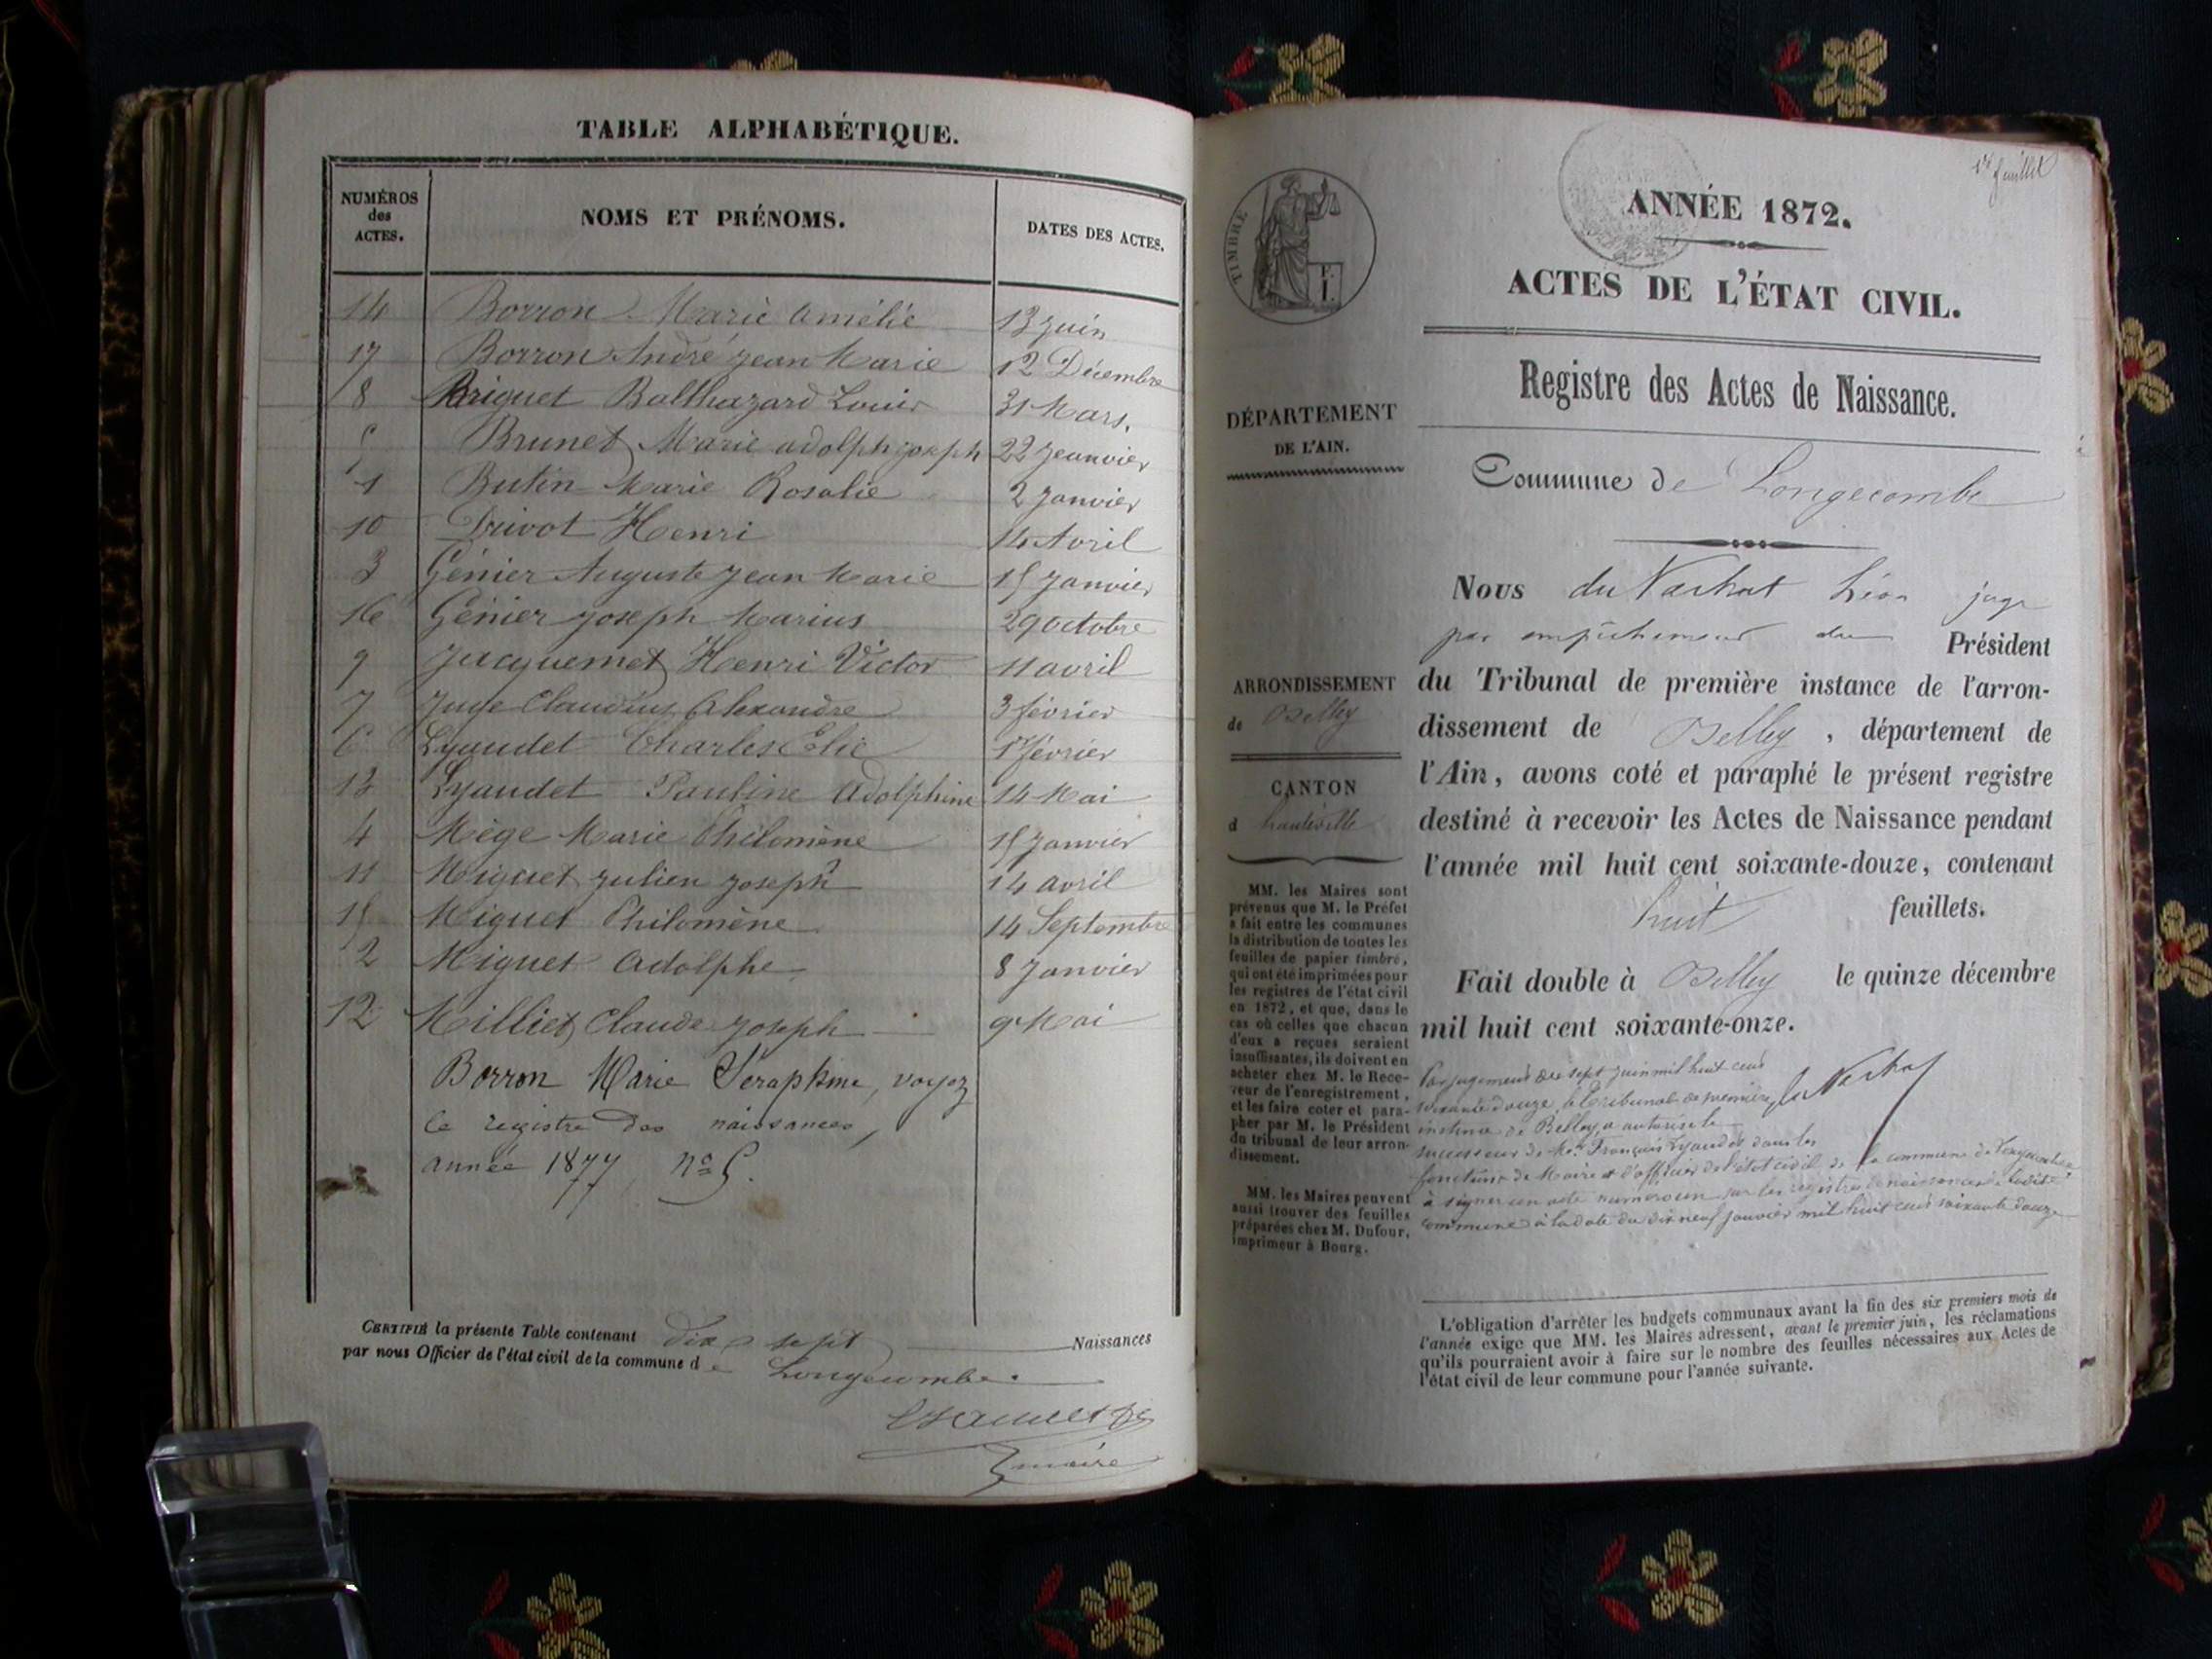 TABLE ALPHABÉTIQUE.
NUMÉROS
des
ACTES.
NOMS ET PRÉNOMS.
DATES DES ACTES.
14 Borron Marie Amélie 13 juin
17 Borron André jean Marie 12 Décembre
8 Briguet Balthazard Louis 31 Mars.
5 Brunet Marie adolph joseph 22 jeanvier
1 Butin Marie Rosalie 2 Janvier
10 Drivot Henri 14 Avril
3 Génier Auguste jean Marie 15 Janvier
16 Génier joseph Marius 29 octobre
9 Jacquemet Henri Victor 11 avril
7 Juge Claudius Alexandre 3 février
6 Lyaudet Charles Elie 1 février
13 Lyaudet Pauline Adolphine 14 Mai
4 Mège Marie Philomène 15 Janvier
11 Miguet julien joseph 14 avril
15 Miguet Philomène 14 Septembre
2 Miguet Adolphe 8 Janvier
12 Milliet Claude joseph 9 Mai
Borron Marie Séraphine, voyez
le registre des naissances,
année 1877, nº 5.
CERTIFIÉ la présente Table contenant dix sept Naissances
par nous Officier de l'état civil de la commune de Longecombe.
maire
1er feuillet
TIMBRE
ANNÉE 1872.
ACTES DE L'ÉTAT CIVIL.
Registre des Actes de Naissance.
DÉPARTEMENT
DE L'AIN.
Commune de Longecombe
Nous du Nachat Léon juge
par empêchement du Président
ARRONDISSEMENT
de Belley
du Tribunal de première instance de l'arron-
dissement de Belley, département de
l'Ain, avons coté et paraphé le présent registre
destiné à recevoir les Actes de Naissance pendant
l'année mil huit cent soixante-douze, contenant
huit feuillets.
CANTON
d hauteville
MM. les Maires sont
prévenus que M. le Préfet
a fait entre les communes
la distribution de toutes les
feuilles de papier timbré,
qui ont été imprimées pour
les registres de l'état civil
en 1872, et que, dans le
cas où celles que chacun
d'eux a reçues seraient
insuffisantes, ils doivent en
acheter chez M. le Rece-
veur de l'enregistrement,
et les faire coter et para-
pher par M. le Président
du tribunal de leur arron-
dissement.
MM. les Maires peuvent
aussi trouver des feuilles
préparées chez M. Dufour,
imprimeur à Bourg.
Fait double à Belley le quinze décembre
mil huit cent soixante-onze.
Par jugement du sept juin mil huit cent
soixante douze, le tribunal de première
instance de Belley, a autorisé le
successeur de Mr. François Lyaudet dans les
fonctions de Maire et d'officier de l'état civil de la commune de Longecombe,
à signer un acte numéro un sur les registres de naissances de ladite
commune à la date du dix neuf janvier mil huit cent soixante douze
L'obligation d'arrêter les budgets communaux avant la fin des six premiers mois de
l'année exige que MM. les Maires adressent, avant le premier juin, les réclamations
qu'ils pourraient avoir à faire sur le nombre des feuilles nécessaires aux Actes de
l'état civil de leur commune pour l'année suivante.